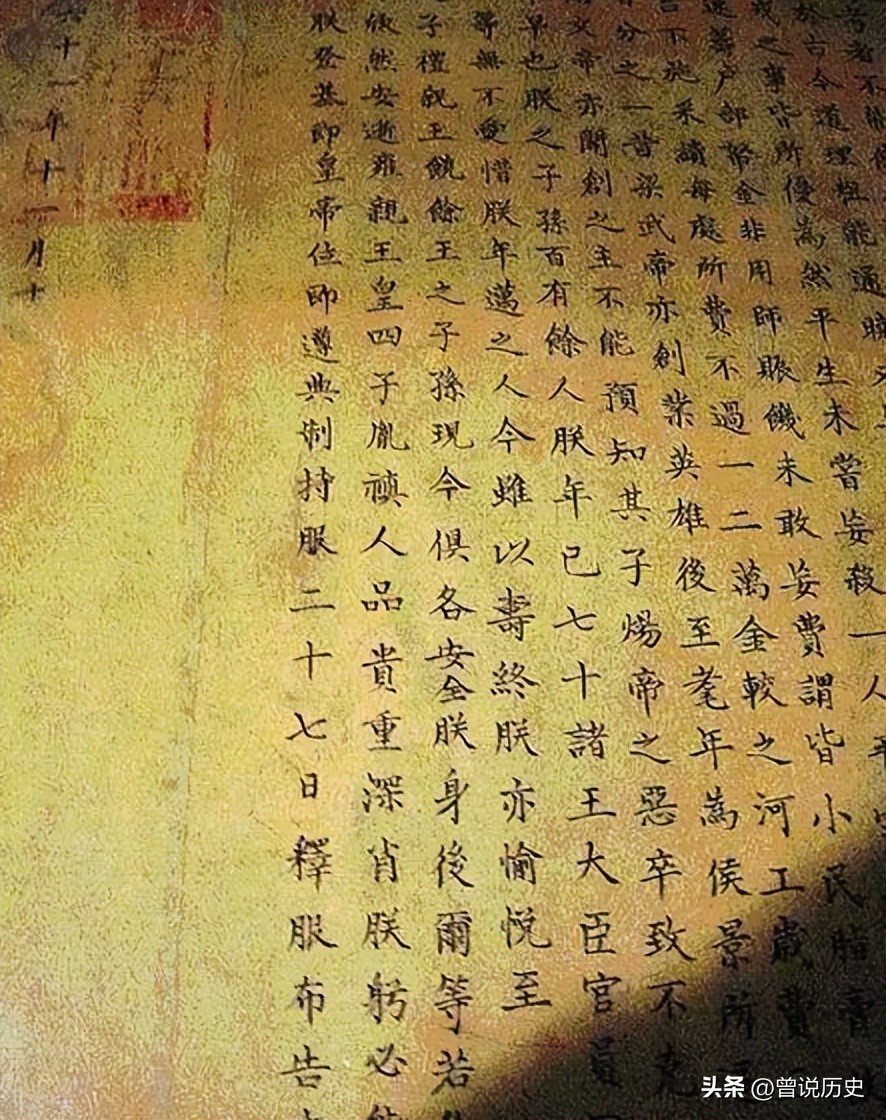 考者不能
古今道理粗能通曉又
戎之事皆所優為然平生未嘗妄殺一人平
戶部帑金非用師賑饑未敢妄費謂皆小民脂膏
不施采繢每處所費不過一二萬金較之河工歲費
百分之一昔梁武帝亦創業英雄後至耄年為侯景所
文帝亦開創之主不能預知其子煬帝之惡卒致不克
早也朕之子孫百有餘人朕年已七十諸王大臣官員
等無不愛惜朕年邁之人今雖以壽終朕亦愉悅至
子禮親王饒餘王之子孫現今俱各安全朕身後爾等若
欣然安逝雍親王皇四子胤禛人品貴重深肖朕躬必
朕登基即皇帝位即遵典制持服二十七日釋服布告
六十一年十一月十
头条 @曾说历史